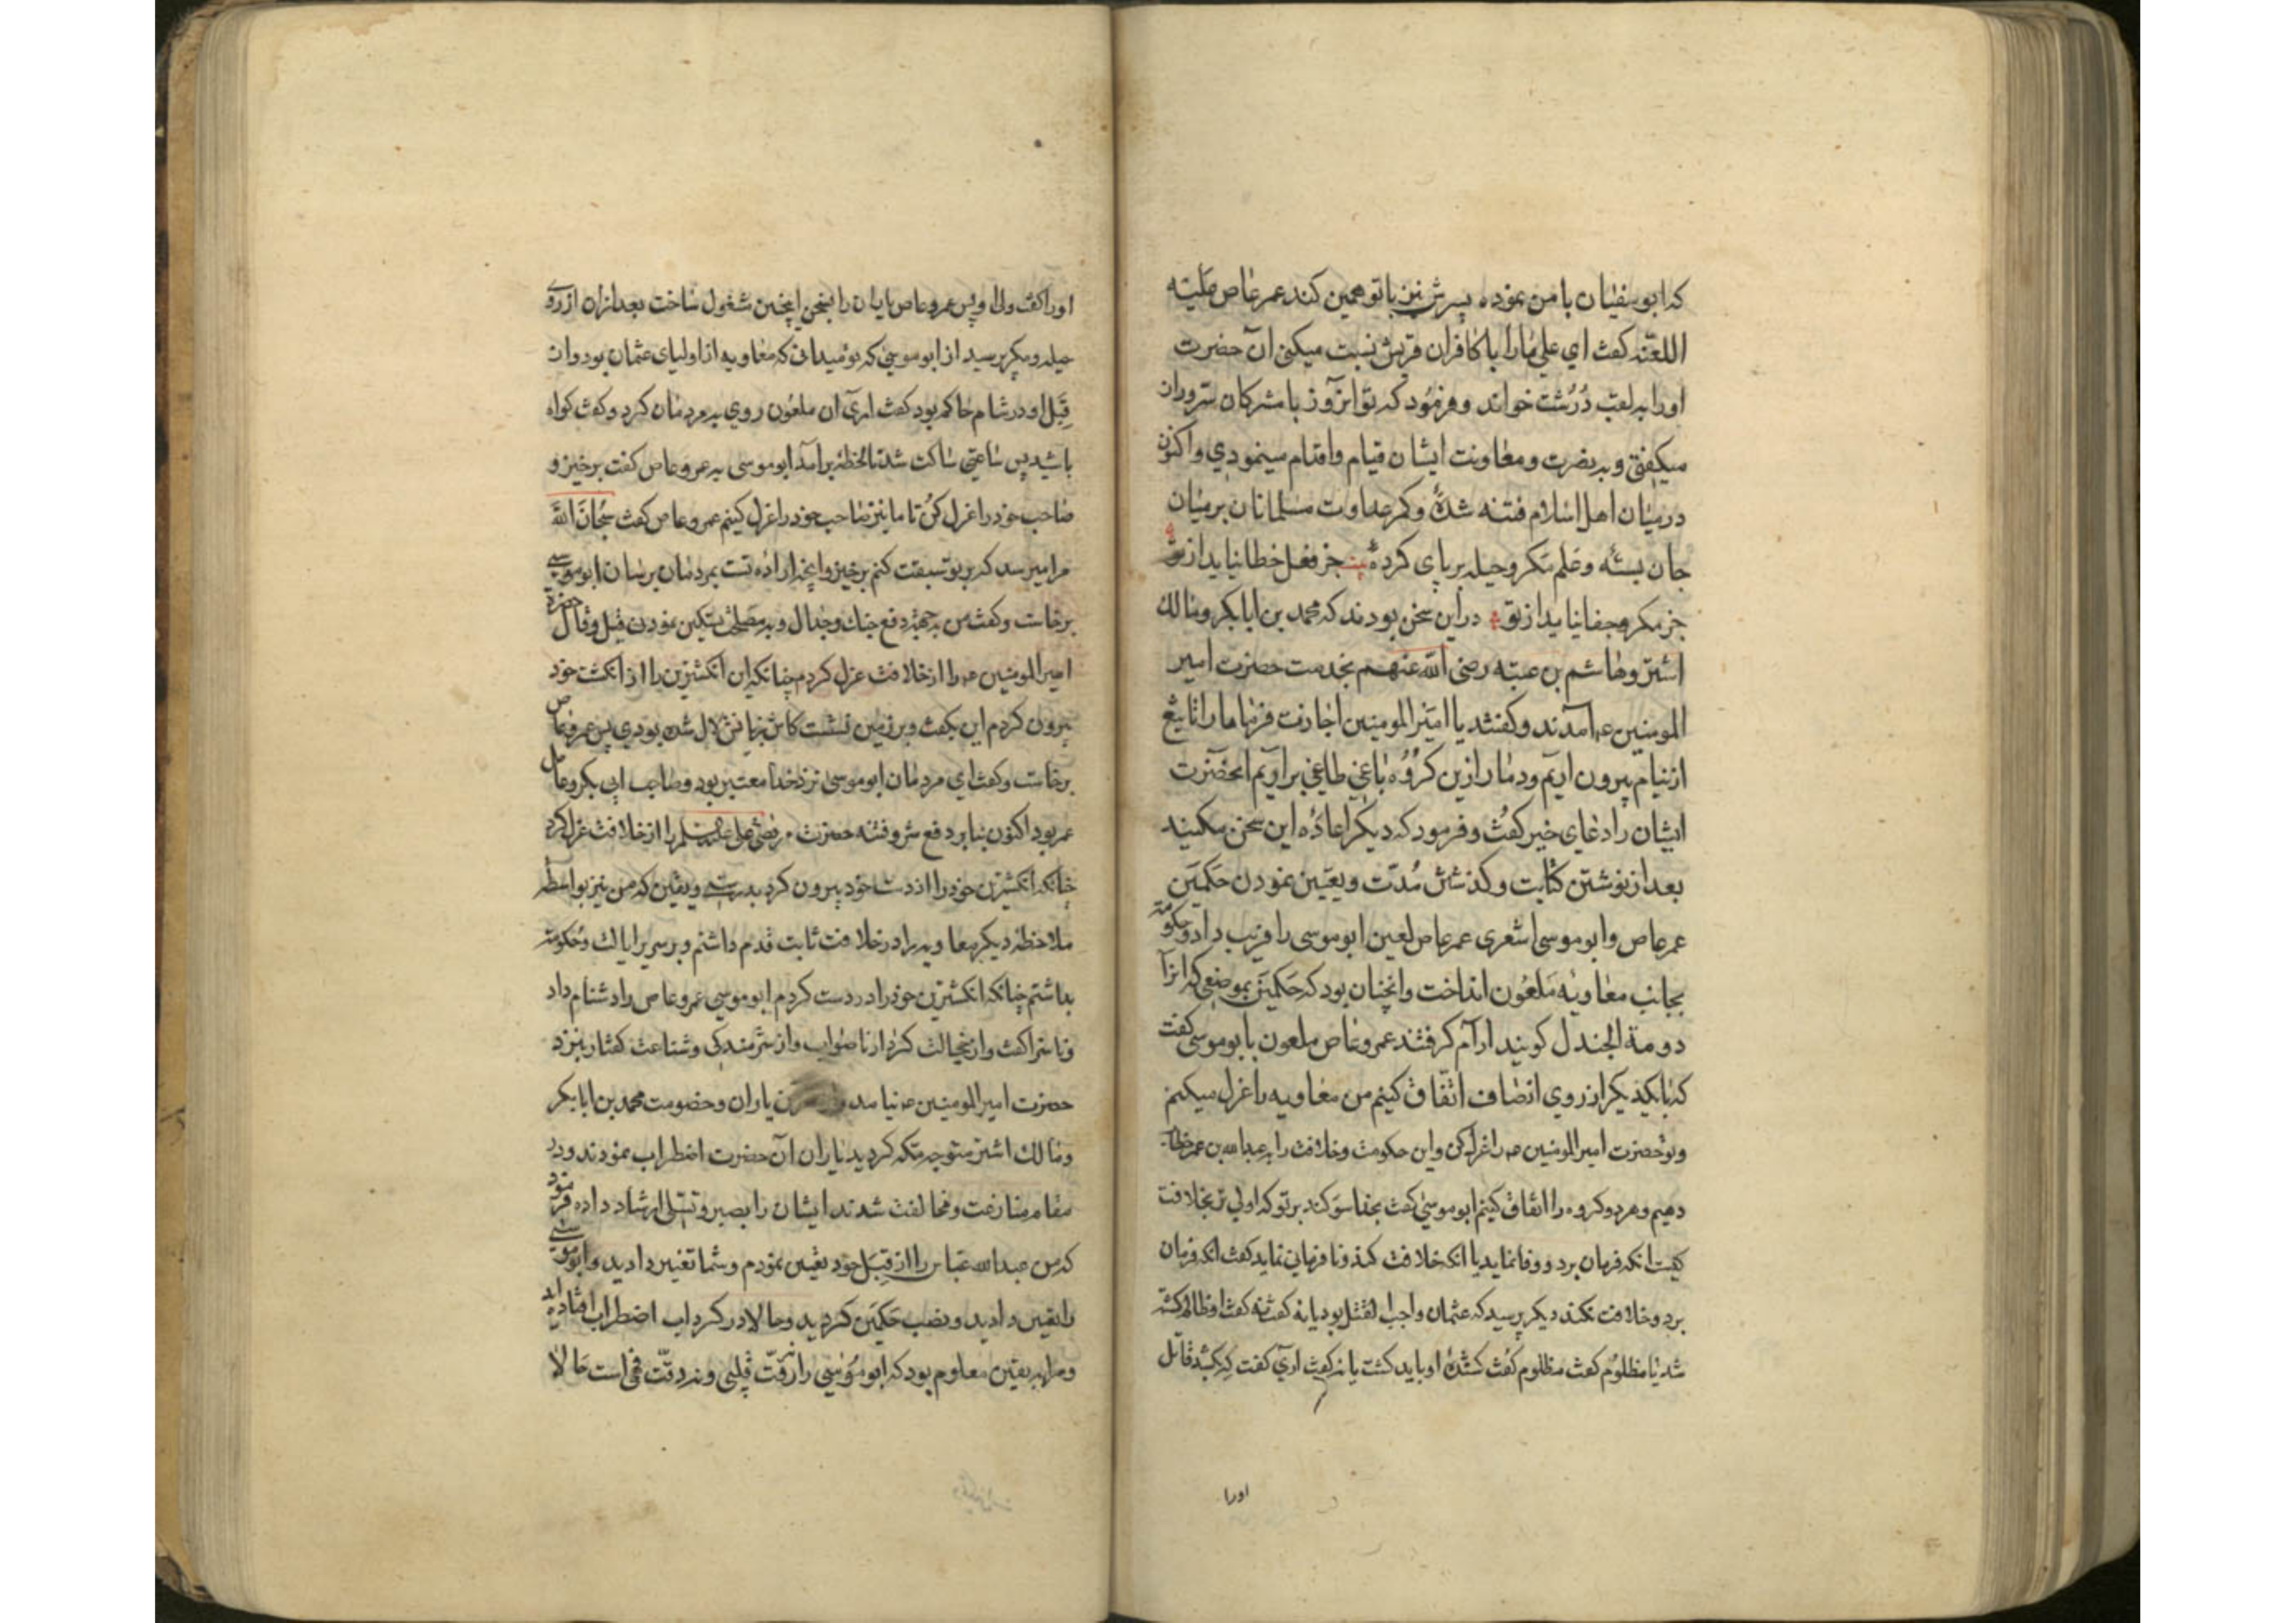 که ابو سفیان با من نموده پسرش نیز با تو همین کند عمر عاص علیه
اللعنه کفت ای علی مارا با کافران قریش نسبت میکنی آن حضرت
اورا به لعب درشت خواند و فرمود که تو انروز با مشرکان سروران
میکفتی و به نصرت و معاونت ایشان قیام و اقدام مینمودی و اکنون
درمیان اهل اسلام فتنه شدۀ و کمر عداوت مسلمانان برمیان
جان بسته و علم مکر و حیله بر پای کردۀ بیت جز فعل خطا نیاید از تو
جز مکر و جفا نیاید از تو دراین سخن بودند که محمد بن ابا بکر و مالک
اشتر و هاشم بن عتبه رضی الله عنهم بخدمت حضرت امیر
المومنین عم آمدند و کفتند یا امیر المومنین اجازت فرما ما را تا تیغ
از نیام بیرون اریم و دمار ازین کروه باغی طاغی براویم انحضرت
ایشان را دعای خیر کفت و فرمود که دیکر اعادۀ این سخن مکنید
بعد از نوشتن کتابت و کذشتن مدت و تعیین نمودن حکمین
عمر عاص و ابو موسی اشعری عمر عاص لعین ابو موسی را فریب داد و حکومة
بجانب معاویه ملعون انداخت و انچنان بود که حکمین بموضعی که انرا
دومة الجندل کویند ارام کرفتند عمرو عاص ملعون با بو موسی کفت
که با یکدیکر از روی انصاف اتفاق کنیم من معاویه را عزل میکنم
و تو حضرت امیر المومنین عم را عزل کن و این حکومت و خلافت را به عبدالله بن عمر خطاب
دهیم و هر دو کروه را اتفاق کنیم ابو موسی کفت بخدا سوکند بر تو که اولی تر بخلافت
کیست انکه فرمان برد و وفا نماید یا انکه خلافت کند و نا فرمانی نماید کفت انکه فرمان
برد و خلافت نکند دیکر پرسید که عثمان واجب القتل بود یا نه کفت نه کفت او ظالم کشته
شد یا مظلوم کفت مظلوم کفت کشندۀ او باید کشت یا نه کفت اری کفت که بکشد قاتل
اورا
اورا کفت ولی او پس عمرو عاص یا یان را بسخن اینچنین مشغول ساخت بعد ازان از روی
حیله و مکر پرسید از ابو موسی که تو میدانی که معاویه از اولیای عثمان بود و ان
قبل او در شام حاکم بود کفت اری ان ملعون روی به مردمان کرد و کفت کواه
باشید پس ساعتی ساکت شد تا لحظۀ برامد ابو موسی به عمرو عاص کفت برخیز و
صاحب خود را عزل کن تا ما نیز صاحب خود را عزل کنیم عمرو عاص کفت سبحان الله
مرا میرسد که بر تو سبقت کنم برخیز و انچه ارادۀ تست بمردمان برسان ابو موسی
برخاست و کفت من به جهت دفع جنک و جدال و به مصلحت تسکین نمودن قیل و قال حضرة
امیر المومنین عم را از خلافت عزل کردم چنانکه این انکشترین را از انکشت خود
بیرون کردم این بکفت و بر زمین نشست کاش زبانش لال شده بودی پس عمرو عاص
برخاست و کفت ای مردمان ابو موسی نزد خدا معتبر بود و صاحب ابی بکر و عامل
عمر بود اکنون بنا بر دفع شر و فتنه حضرت مرتضی علی علیه السلم را از خلافت عزل کرد
چنانکه انکشترین خود را از دست خود بیرون کرد بدرستی و یقین که من نیز بواسطه
ملاحظۀ دیکر معاویه را در خلافت ثابت قدم داشتم و بر سریر ایالت و حکومة
بداشتم چنانکه انکشترین خود را در دست کردم ابو موسی عمرو عاص را دشنام داد
و ناسزا کفت و از خجالت کردار ناصواب و از شرمندکی و شناعت کفتار بنزد
حضرت امیر المومنین عم نیامد یاران و خصومت محمد بن ابا بکر
و مالک اشتر متوجه مکه کردید یاران آن حضرت اضطراب نمودند و در
مقام منازعت و مخالفت شدند ایشان را بصبر و تسلی ارشاد داده فرمود
که من عبدالله عباس را از قبل خود تعیین نمودم و شما تغییر دادید و ابو موسی
را تعیین دادید و نصب حکمین کردید و حالا در کرداب اضطراب افتاده اید
و مرا به یقین معلوم بود که ابو موسی را نه رقت قلبی و نه دقت فهمی است حالا